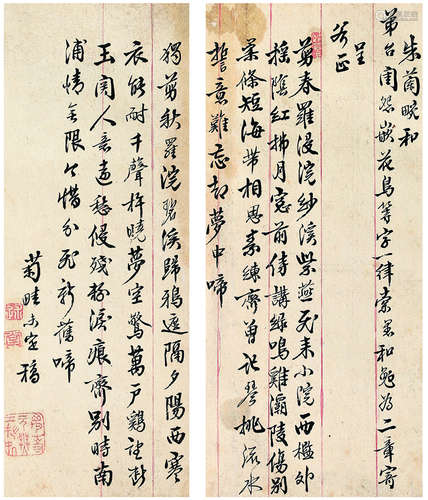 弟台閨怨嵌花鳥等字一律索和勉為二章寄
呈
剪春羅漫浣紗溪紫燕飛來小院西檻外
搖陰紅拂月窓前侍講綠鳴雞灞陵傷別
柔條短海帶相思素練齊曾記琴挑流水
誓意難忘却夢中啼
獨剪秋羅浣碧溪歸鴉遥隔夕陽西寒
衣能耐千聲杵曉夢空驚萬戶鷄望斷
玉關人意遠愁侵殘粉淚痕齊別時南
浦情無限今惜分飛訴舊啼
菊畦未定稿